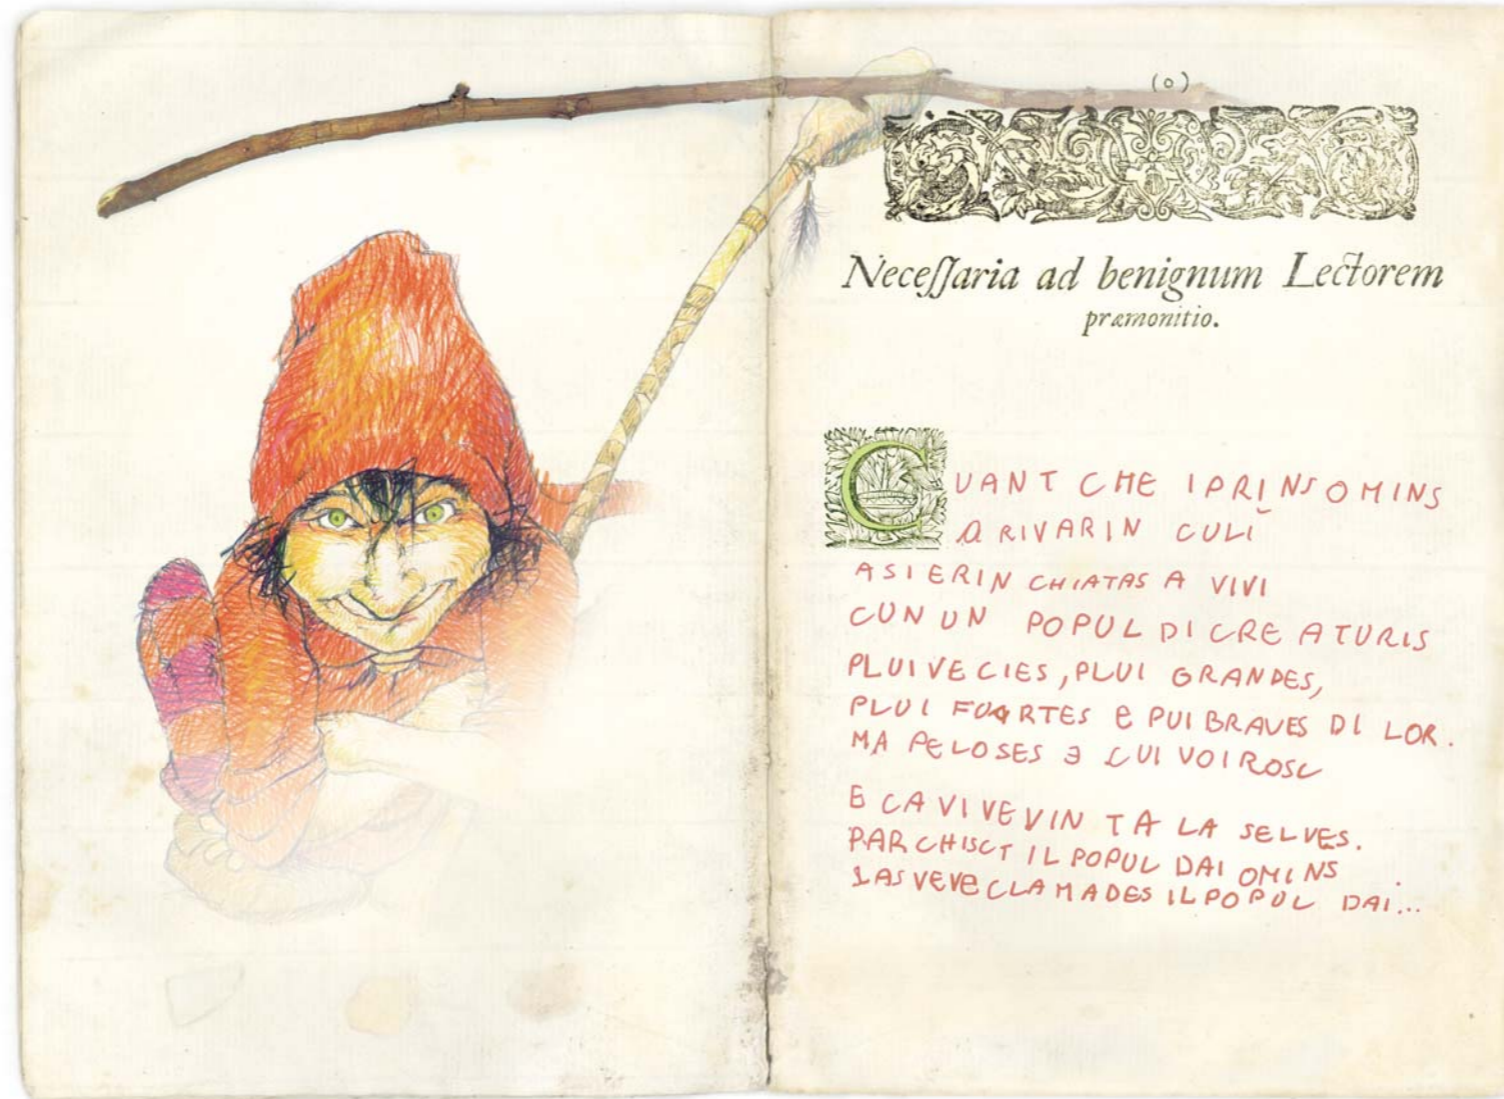 (0)
Neceſſaria ad benignum Lectorem
præmonitio.
CUANT CHE I PRINS OMINS
A RIVARIN CULI
A SI ERIN CHIATAS A VIVI
CUN UN POPUL DI CREATURIS
PLUI VECIES, PLUI GRANDES,
PLUI FUARTES E PUI BRAVES DI LOR.
MA PELOSES E
E CA VIVEVIN TA LA SELVES.
PARCHISCT IL POPUL DAI OMINS
LAS VEVE CLAMADES IL POPUL DAI...